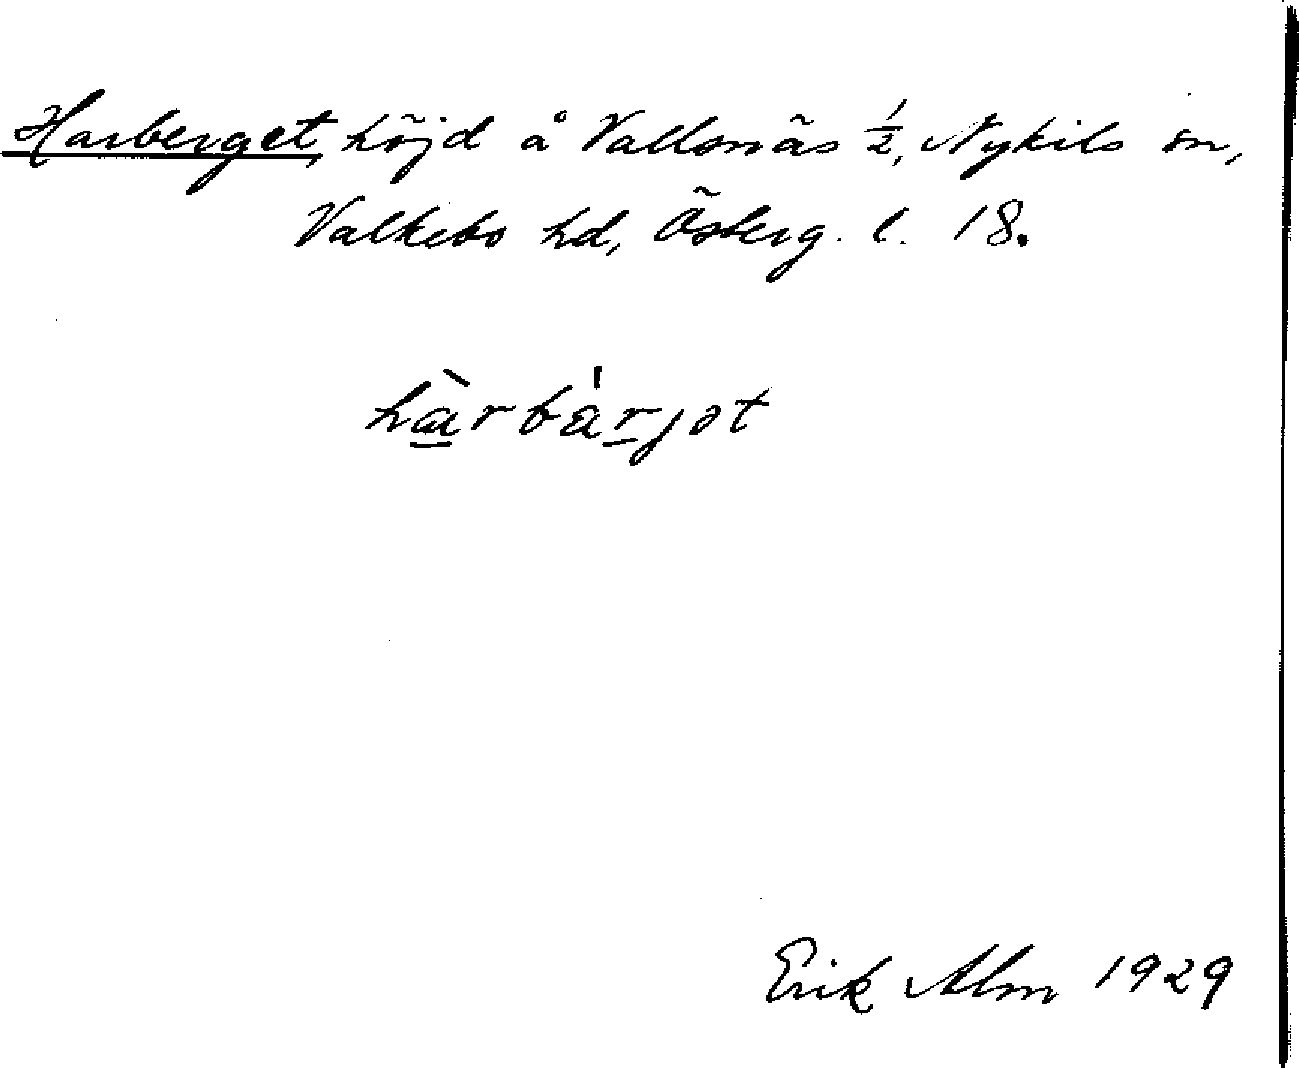 Harberget, höjd å Vallsnäs ½, Nykils sn,
Valkebo hd, Österg. l. 18.
hàrbá̈rjət
Erik Alm 1929